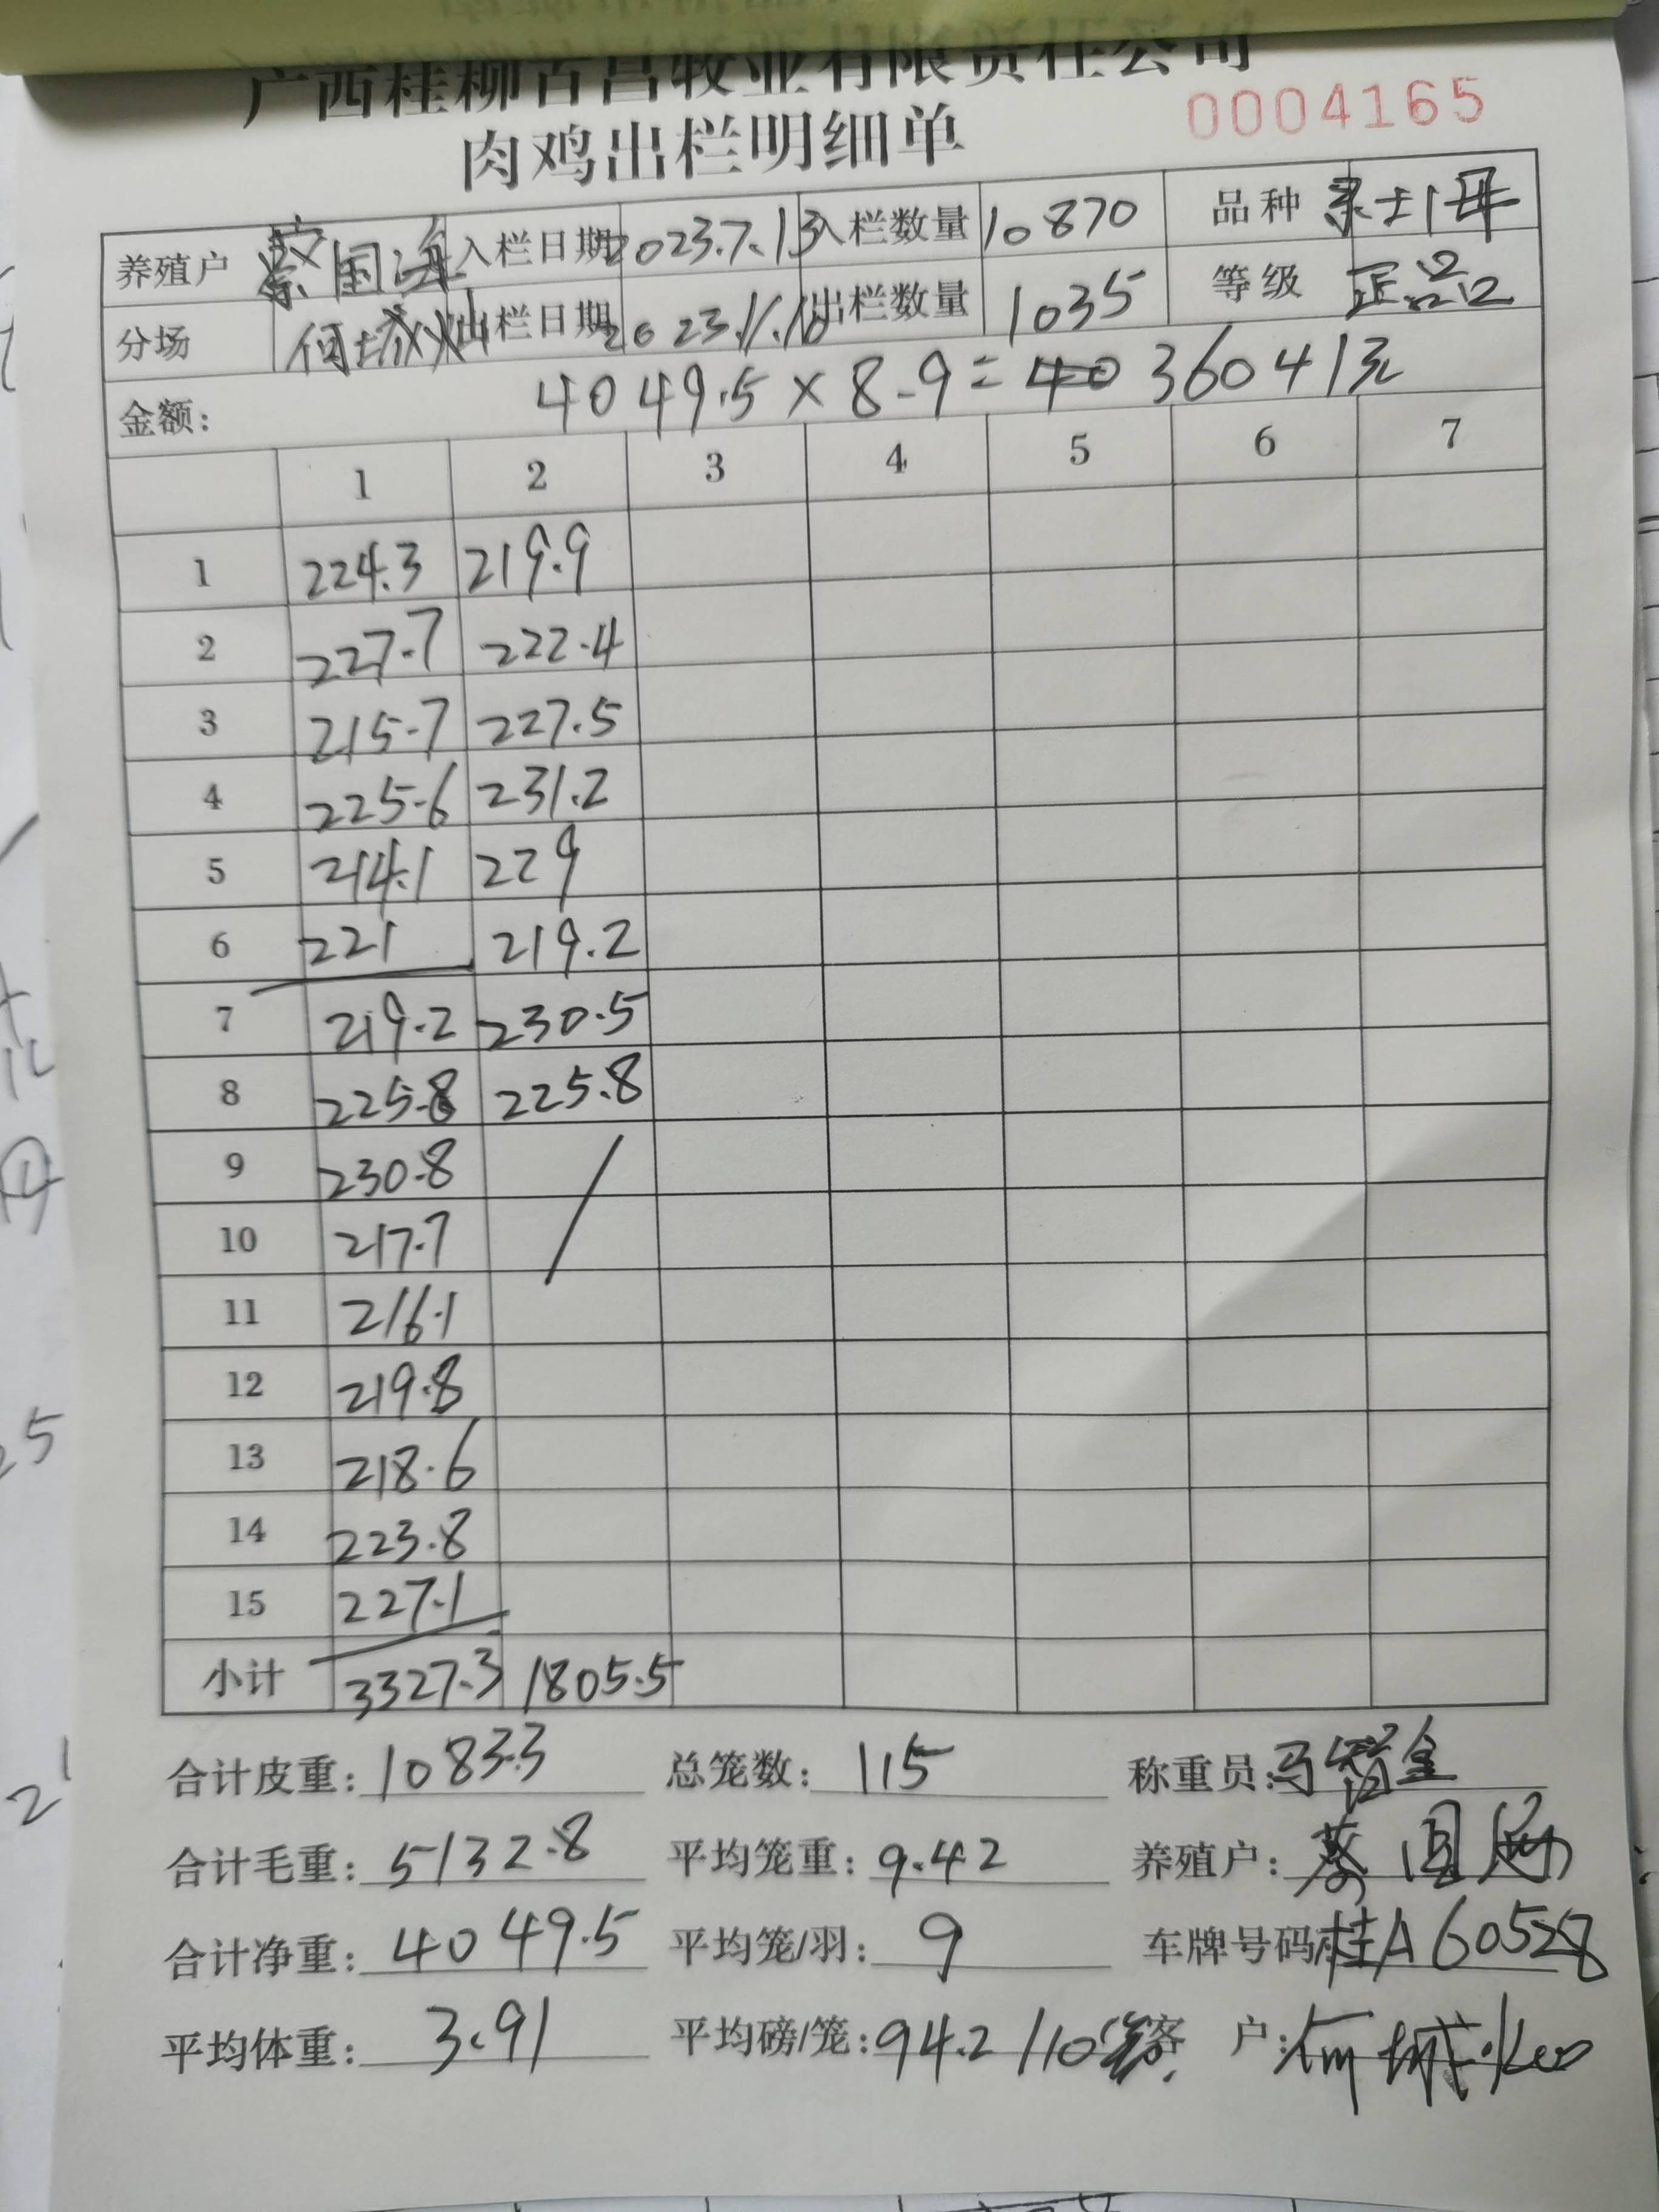 广西桂柳百昌牧业有限责任公司
肉鸡出栏明细单 0004165
养殖户 蔡国海 入栏日期 2023.7.13 入栏数量 10870 品种
分场 何城灿 出栏日期 2023.11.10 出栏数量 1035 等级 正品
金额: 4049.5 × 8.9 = 36041元
1 2 3 4 5 6 7
1 224.3 219.9
2 227.7 222.4
3 215.7 227.5
4 225.6 231.2
5 214.1 229
6 221 219.2
7 219.2 230.5
8 225.8 225.8
9 230.8
10 217.7
11 216.1
12 219.8
13 218.6
14 223.8
15 227.1
小计 3327.3 1805.5
合计皮重: 1083.3 总笼数: 115 称重员: 马智金
合计毛重: 5132.8 平均笼重: 9.42 养殖户: 蔡国海
合计净重: 4049.5 平均笼/羽: 9 车牌号码: 桂A60528
平均体重: 3.91 平均磅/笼: 94.2/10笼 客户: